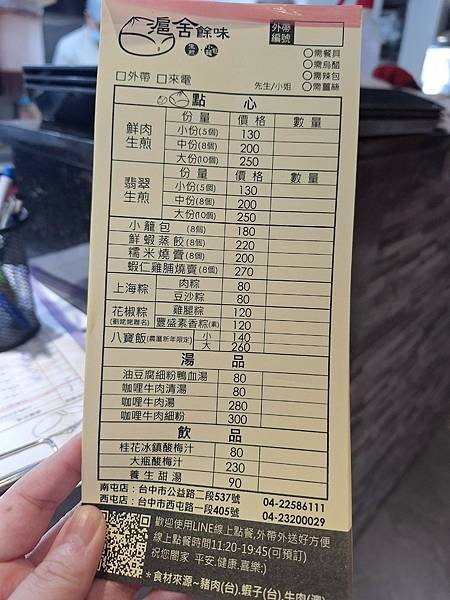 滬舍餘味
生煎 小籠
外帶編號
○需餐具
○需烏醋
○需辣包
○需薑絲
□外帶 □來電 先生/小姐
點心
鮮肉生煎 份量 價格 數量
小份(5個) 130
中份(8個) 200
大份(10個) 250
翡翠生煎 份量 價格 數量
小份(5個) 130
中份(8個) 200
大份(10個) 250
小籠包 (8個) 180
鮮蝦蒸餃(8個) 220
糯米燒賣(8個) 200
蝦仁雞脯燒賣(8個) 270
上海粽 肉粽 80
豆沙粽 80
花椒粽(劉姥姥聯名) 雞腿粽 120
豐盛素香粽(素) 120
八寶飯(農曆新年限定) 小 140
大 260
湯品
油豆腐細粉鴨血湯 80
咖哩牛肉清湯 80
咖哩牛肉湯 280
咖哩牛肉細粉 300
飲品
桂花冰鎮酸梅汁 80
大瓶酸梅汁 230
養生甜湯 90
南屯店：台中市公益路二段537號 04-22586111
西屯店：台中市西屯路一段405號 04-23200029
歡迎使用LINE線上點餐,外帶外送好方便
線上點餐時間11:20-19:45(可預訂)
祝您闔家 平安,健康,喜樂:)
*食材來源~豬肉(台).蝦子(台).牛肉(澳)